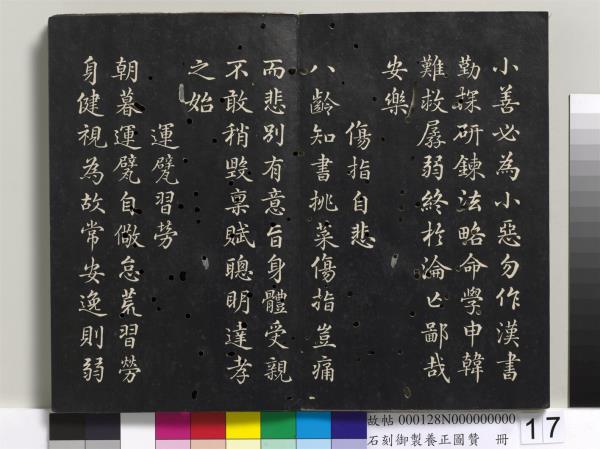 小善必為小惡勿作漢書
勤探研鍊法略命學申韓
難救孱弱終於淪亡鄙哉
安樂
傷指自悲
八齡知書挑菜傷指豈痛
而悲別有意旨身體受親
不敢稍毀禀賦聰明達孝
之始
運甓習勞
朝暮運甓自儆怠荒習勞
身健視為故常安逸則弱
故帖 000128N000000000
石刻御製養正圖贊 冊
17